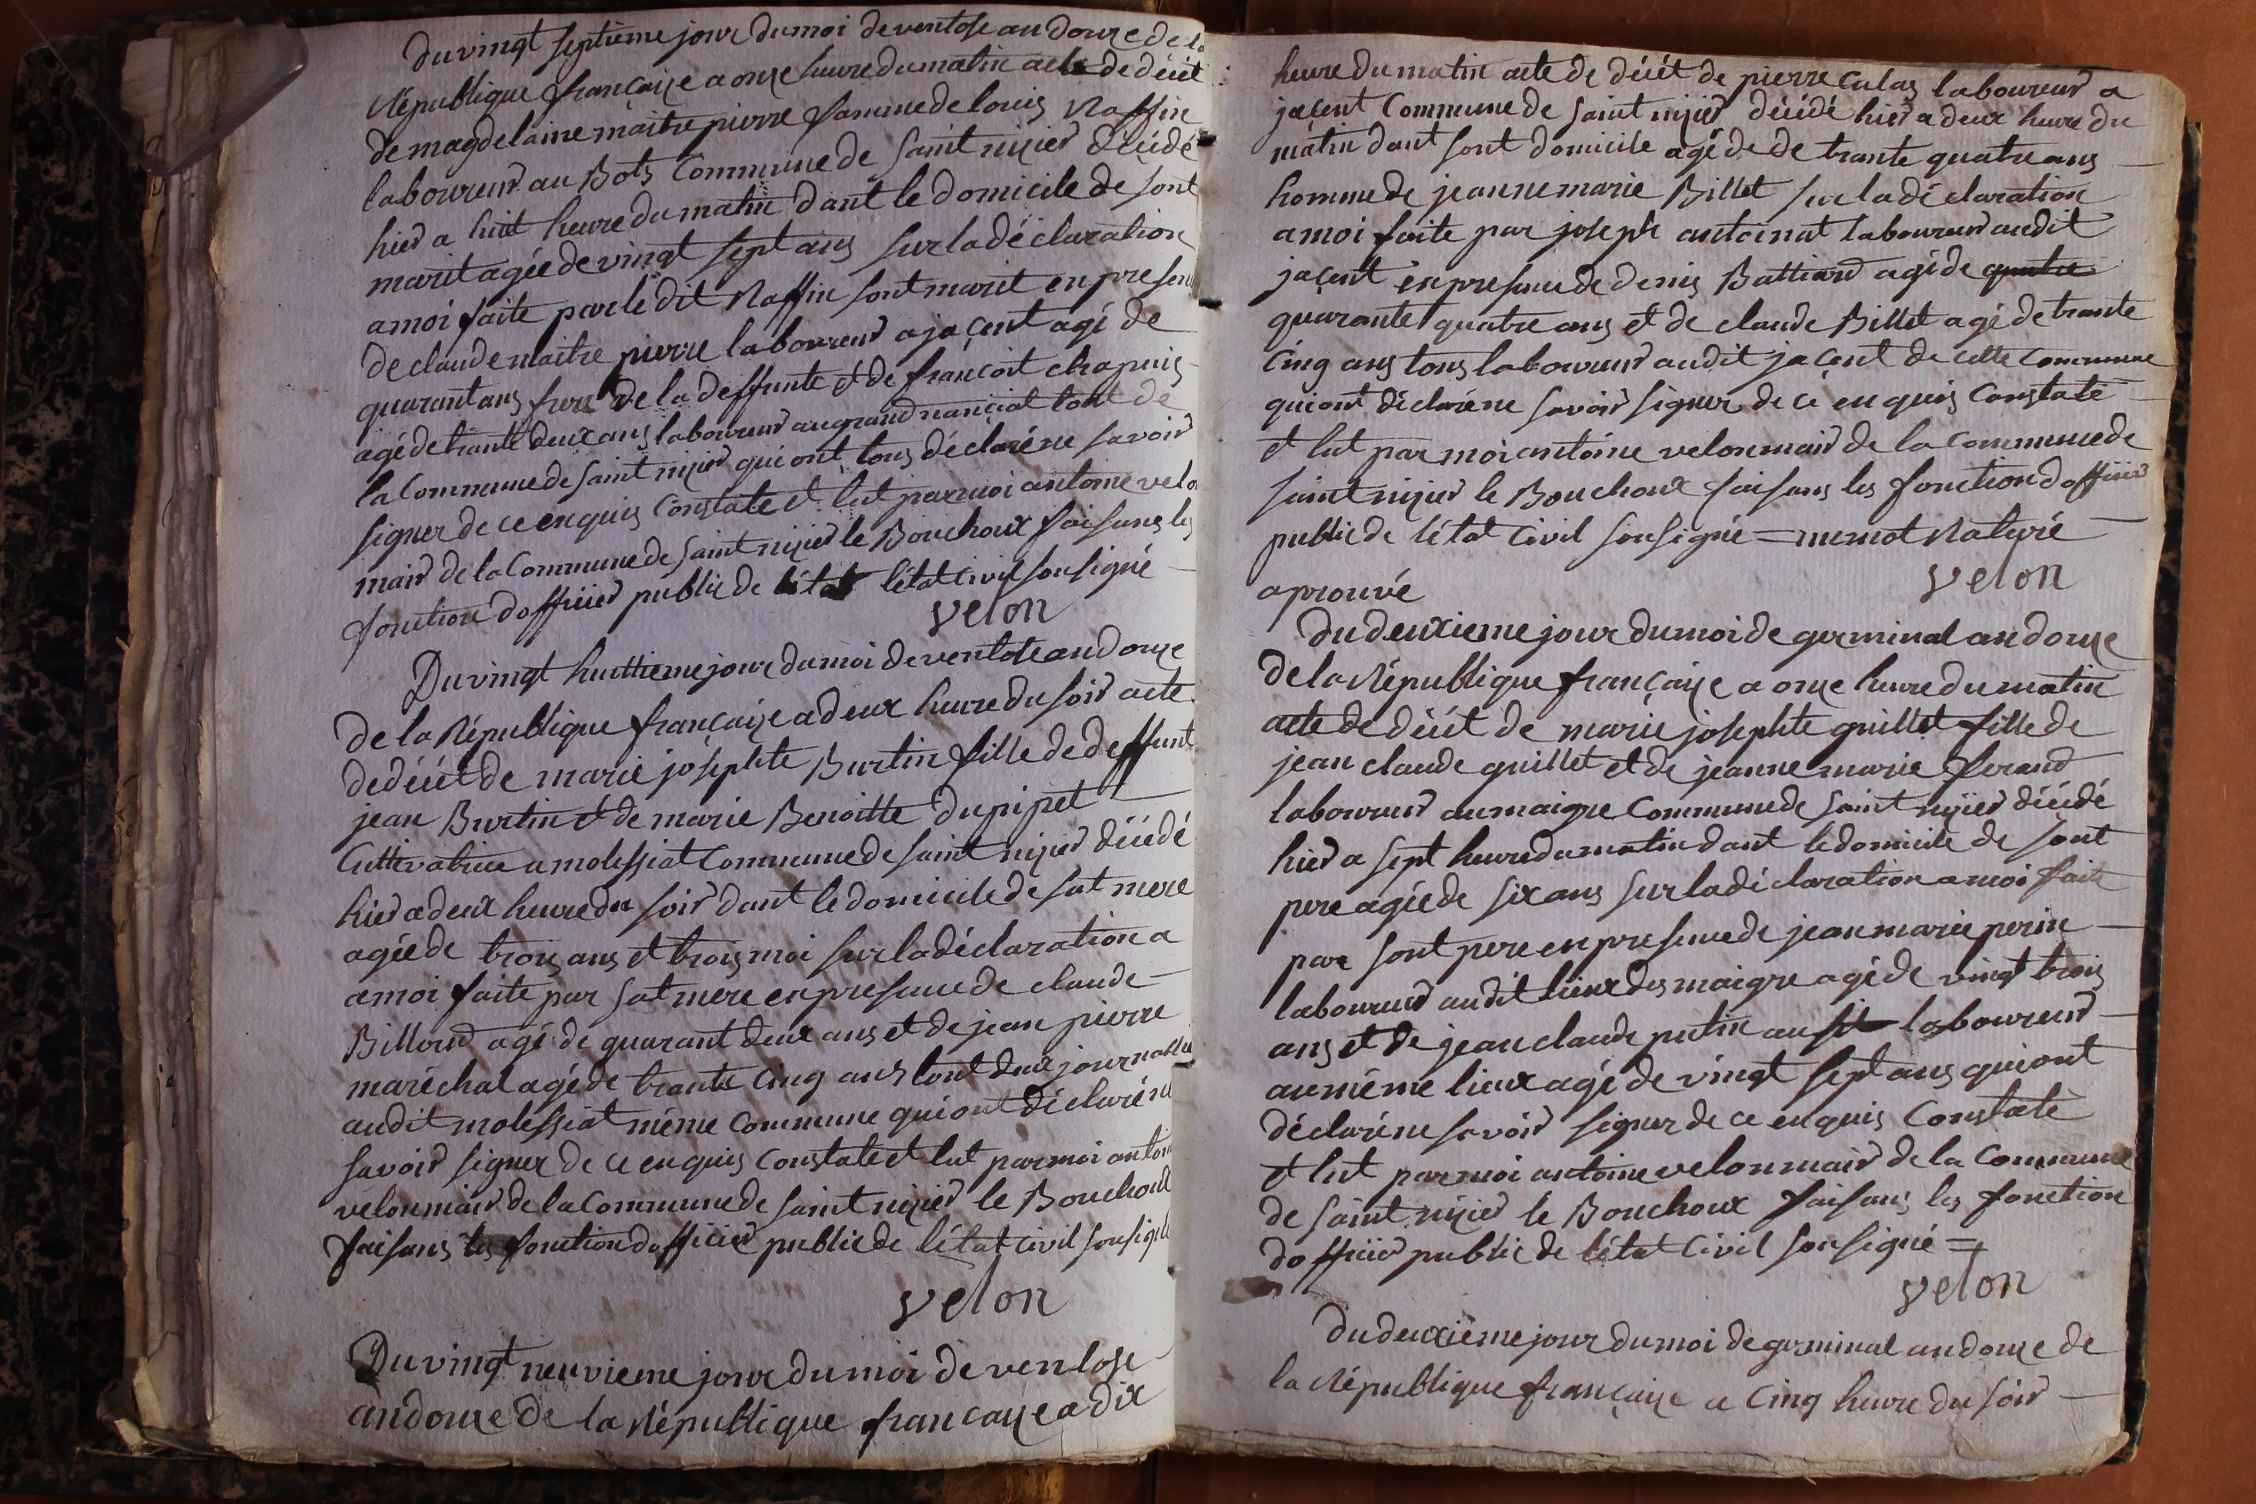 Du vingt septieme jour du moi de ventose an douze de la
République françaize a onze heure du matin acte de décét
de magdelaine maitrepierre famme de louis Raffin
laboureur au Bots Commune de Saint nizier décédé
hier a huit heure du matin dant le domicile de sont
marit agée de vingt sept ans sur la déclaration
a moi faite par le dit Raffin sont marit en presen
de claude maitre pierre laboureur a jaçent agé de
quarant ans frere de la deffunte et de françoit chapuis
agé de trante deux ans laboureur au grand nanciat tout de
la Commune de Saint nizier qui ont tous déclaré ne savoir
signer de ce enquis Constate et lut par moi antoine velo
mair de la Commune de Saint nizier le Bouchoux faisans les
fonction dofficier public de létat létat civil sousigné
velon
Du vingt huittieme jour du moi de ventose an douze
de la République françaize a deux heure du soir acte
de décét de marie josephte Burtin fille de deffunt
jean Burtin et de marie Benoitte Dupipet
Cuttivatrice a molessiat Commune de Saint nizier décédé
hier a deux heure du soir dant le domicile de sat mere
agée de trois ans et trois moi sur la déclaration a
a moi faite par sat mere en presence de claude
Billoud agé de quarant deux ans et de jean pierre
maréchal agé de trante Cinq ans tout deux journallie
audit molessiat méme Commune qui ont déclaré ne
savoir signer de ce enquis Constate et lut par moi antoin
velon mair de la Commune de Saint nizier le Bouchoux
faisans les fonction dofficier public de létat civil sousigné
velon
Du vingt neuvieme jour du moi de ventose
an douze de la République françaize a dix
heure du matin acte de décét de pierre Culas laboureur a
jaçent Commune de Saint nizier décédé hier a deux heure du
matin dant sont domicile agé de de trante quatre ans
homme de jeanne marie Billet sur la déclaration
a moi faite par joseph antoinat laboureur audit
jaçent en presence de denis Battiard agé de quatre
quarante quatre ans et de claude Billet agé de trante
Cinq ans tous laboureur audit jaçent de cette Commune
qui ont déclaré ne savoir signer de ce enquis Constate
et lut par moi antoine velon mair de la Commune de
Saint nizier le Bouchoux faisans les fonction dofficier
public de létat Civil sousigné = un mot Raturé
aprouvé
velon
Du deuxieme jour du moi de germinal an douze
de la République françaize a onze heure du matin
acte de décét de marie josephte guillet fille de
jean claude guillet et de jeanne marie ferand
laboureur au maigre Commune de Saint nizier décédé
hier a sept heure du matin dant le domicile de sont
pere agée de six ans sur la déclaration a moi faite
par sont pere en presence de jean marie perin
laboureur audit lieux des maigre agé de vingt trois
ans et de jean claude putin ausit laboureur
au méme lieux agé de vingt sept ans qui ont
déclaré ne savoir signer de ce enquis Constate
et lut par moi antoine velon mair de la Commune
de Saint nizier le Bouchoux faisans les fonction
dofficier public de létat Civil sousigné =
velon
Du deuxieme jour du moi de germinal an douze de
la République françaize a Cinq heure du soir